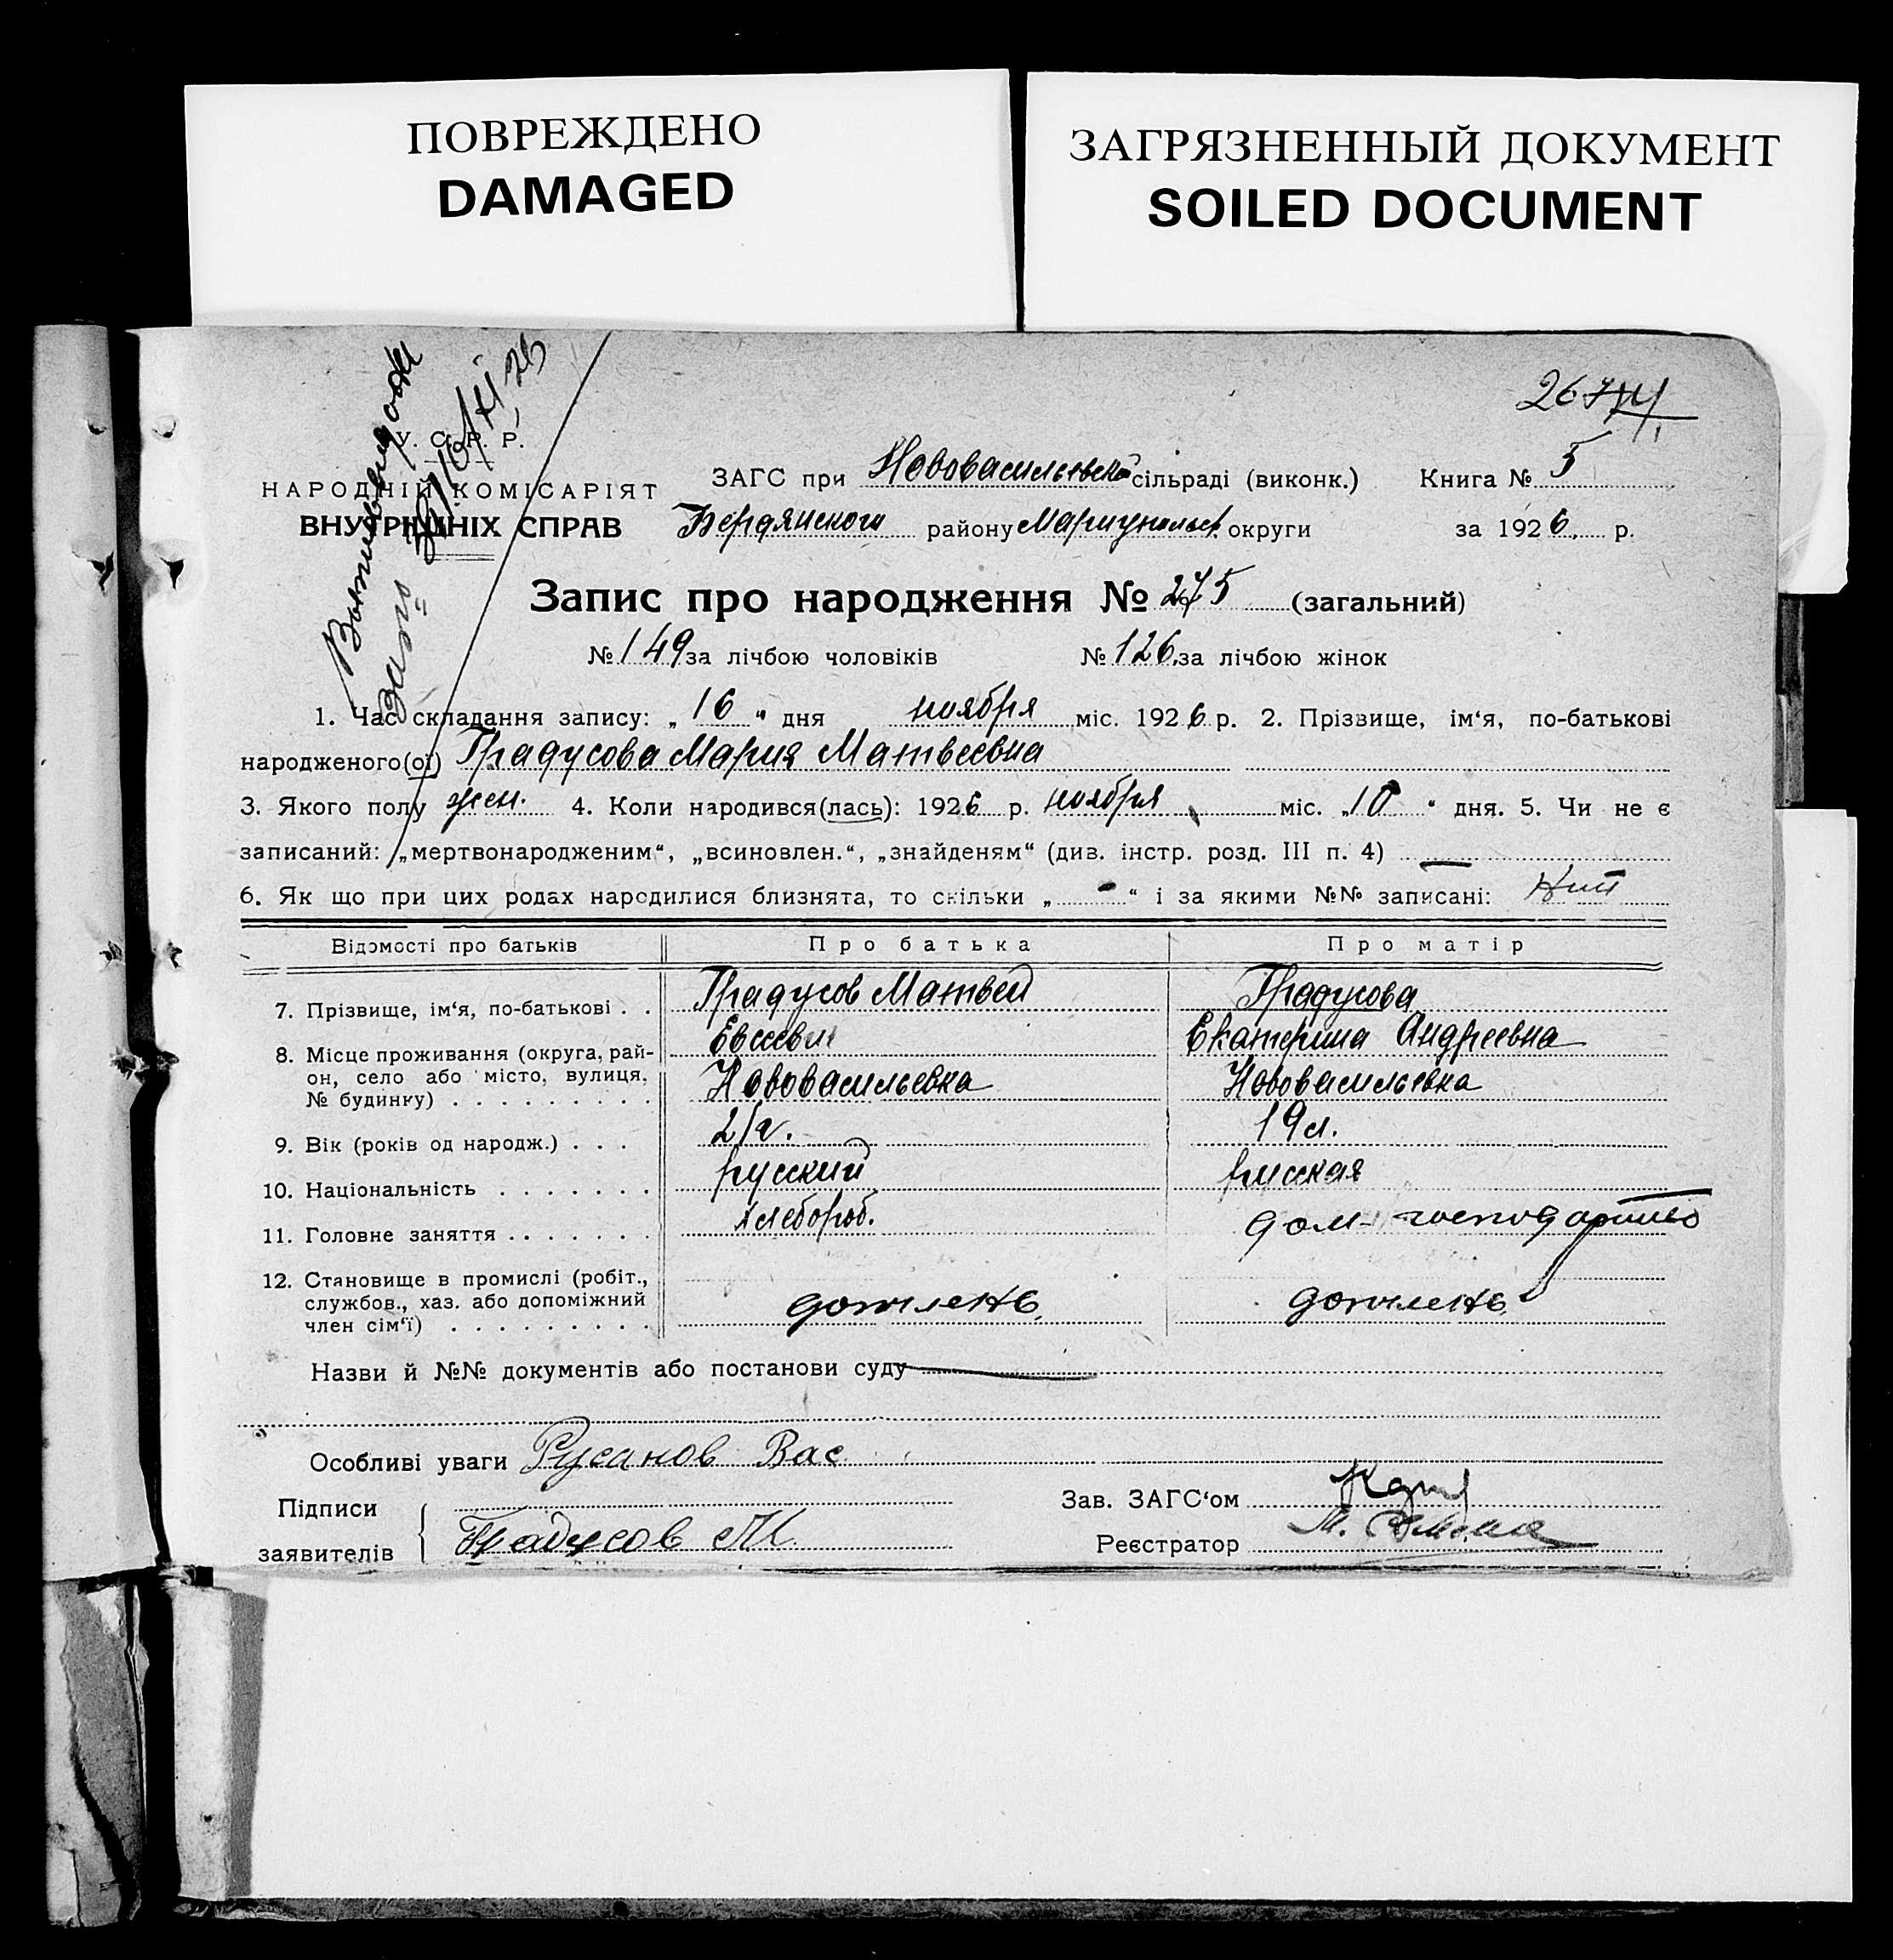 ПОВРЕЖДЕНО
DAMAGED
ЗАГРЯЗНЕННЫЙ ДОКУМЕНТ
SOILED DOCUMENT
У. С. Р. Р.
НАРОДНІЙ КОМІСАРІЯТ
ВНУТРІШНІХ СПРАВ
ЗАГС при Нововасильевской сільраді (виконк.) Книга № 5
Бердянского району Мариупольск. округи за 1926. р.
Запис про народження № 275 (загальний)
№ 149 за лічбою чоловіків № 126. за лічбою жінок
1. Час складання запису: „ 16 “ дня ноября міс. 1926 р. 2. Прізвище, ім‘я, по-батькові
народженого(ої) Градусова Мария Матвеевна
3. Якого полу жен. 4. Коли народився(лась): 1926 р. ноября міс. „10 “ дня. 5. Чи не є
записаний: „мертвонародженим“, „всиновлен.“, „знайденям“ (див. інстр. розд. III п. 4) —
6. Як що при цих родах народилися близнята, то скільки „ - “ і за якими №№ записані:
Відомості про батьків Про батька Про матір
7. Прізвище, ім‘я, по-батькові . . Градусов Матвей Градусова
Евсееви Екатерина Андреевна
8. Місце проживання (округа, рай-
он, село або місто, вулиця,
№ будинку) . . . . . . . . . Нововасильевка Нововасильевка
9. Вік (років од народж.) . . . 21 г. 19 л.
10. Національність . . . . . . . русский русская
11. Головне заняття . . . . . . . хлебороб. дом-господарство
12. Становище в промислі (робіт.,
службов., хаз. або допоміжний
член сім‘ї) . . . . . . . . . допчлень. допчлень.
Назви й №№ документів або постанови суду —
Особливі уваги Русанов Вас
Підписи
заявителів Градусов М.
Зав. ЗАГС‘ом
Реєстратор